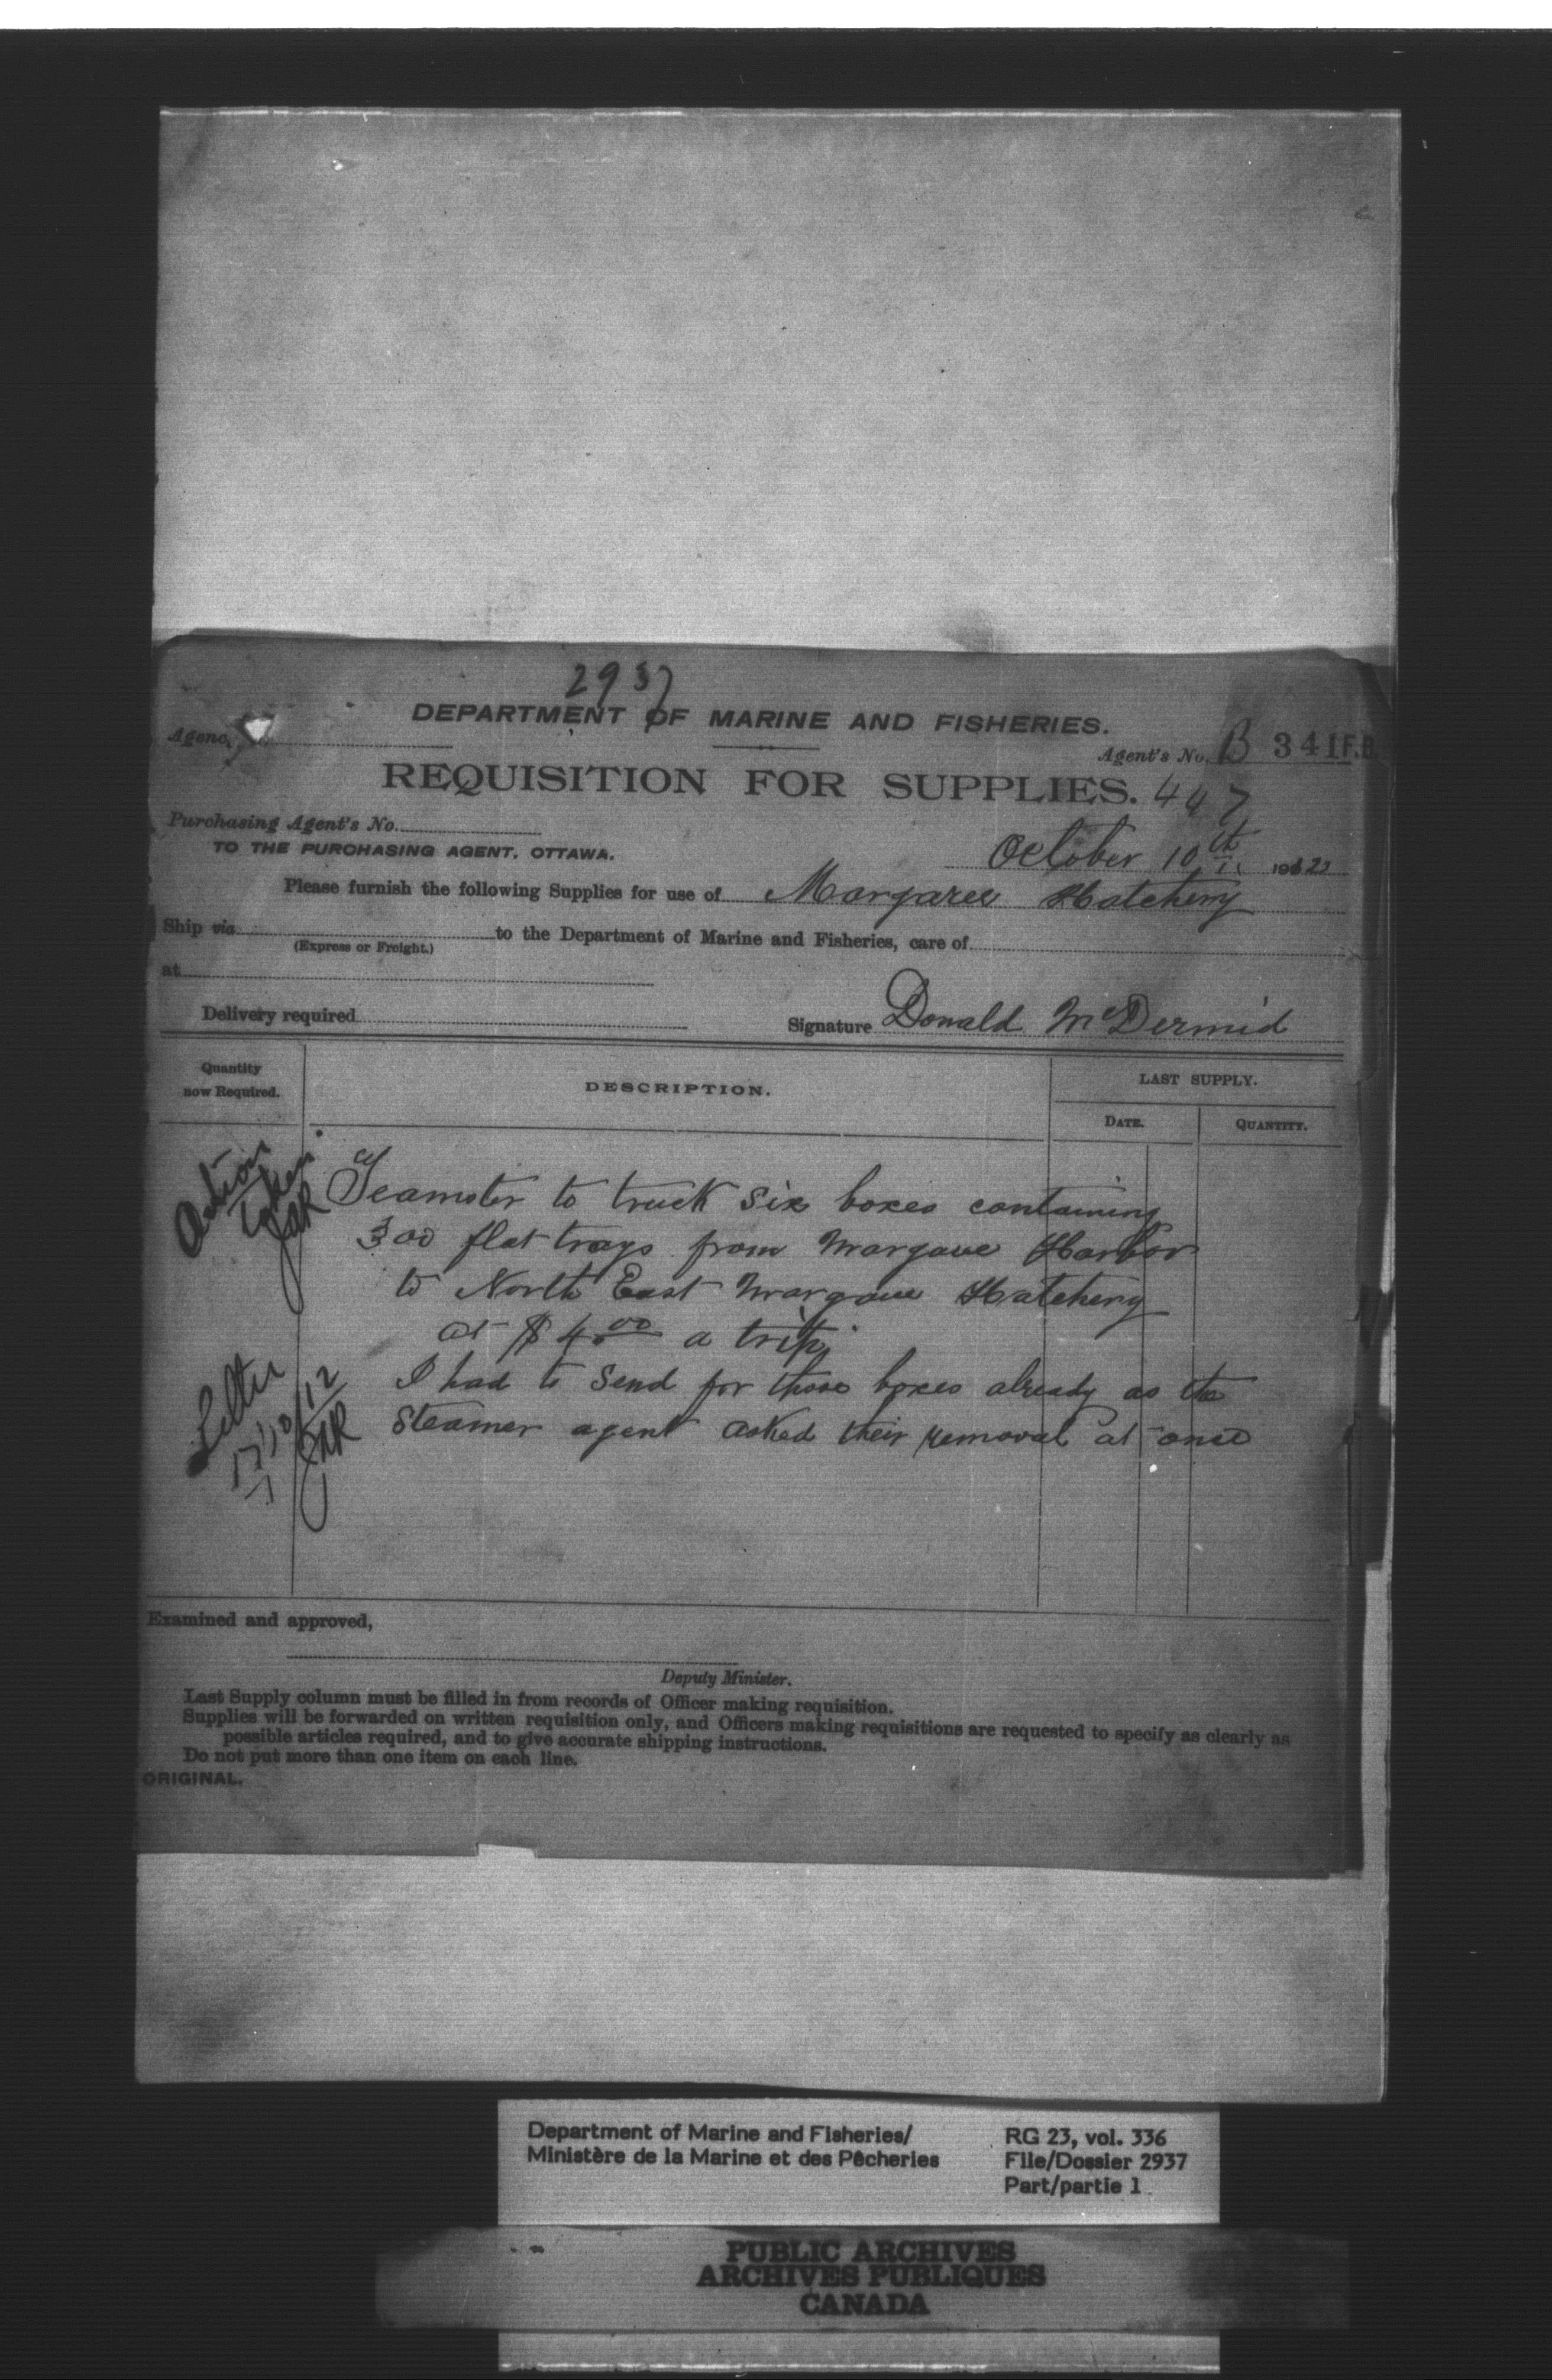 2937
DEPARTMENT OF MARINE AND FISHERIES.
Agency
Agent's No. B 341 F.B.
REQUISITION FOR SUPPLIES. 447
Purchasing Agent's No.
TO THE PURCHASING AGENT, OTTAWA.
October 10th 1912
Please furnish the following Supplies for use of Margaree Hatchery
Ship via to the Department of Marine and Fisheries, care of
(Express or Freight.)
at
Delivery required
Signature Donald McDermid
Quantity now Required.
DESCRIPTION.
LAST SUPPLY.
DATE.
QUANTITY.
Action
taken
JAR
Teamster to truck six boxes containing
300 flat trays from Margaree Harbor
to North East Margaree Hatchery
at $4.00 a trip
I had to send for those boxes already as the
Steamer agent asked their removal at once
Letter
17/10/12
JAR
Examined and approved,
Deputy Minister.
Last Supply column must be filled in from records of Officer making requisition.
Supplies will be forwarded on written requisition only, and Officers making requisitions are requested to specify as clearly as
possible articles required, and to give accurate shipping instructions.
Do not put more than one item on each line.
ORIGINAL.
Department of Marine and Fisheries/
Ministère de la Marine et des Pêcheries
RG 23, vol. 336
File/Dossier 2937
Part/partie 1
PUBLIC ARCHIVES
ARCHIVES PUBLIQUES
CANADA